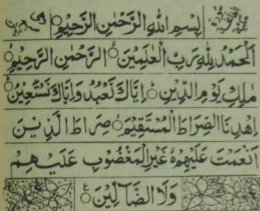 بِسْمِ اللهِ الرَّحْمٰنِ الرَّحِيْمِ
اَلْحَمْدُ لِلّٰهِ رَبِّ الْعٰلَمِيْنَ ۙ الرَّحْمٰنِ الرَّحِيْمِ ۙ
مٰلِكِ يَوْمِ الدِّيْنِ ۙ اِيَّاكَ نَعْبُدُ وَاِيَّاكَ نَسْتَعِيْنُ ۙ
اِهْدِنَا الصِّرَاطَ الْمُسْتَقِيْمَ ۙ صِرَاطَ الَّذِيْنَ
اَنْعَمْتَ عَلَيْهِمْ ۙ غَيْرِ الْمَغْضُوْبِ عَلَيْهِمْ
وَلَا الضَّآلِّيْنَ